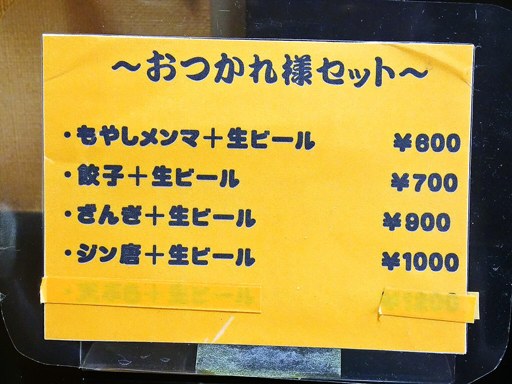 ～おつかれ様セット～
・もやしメンマ＋生ビール ￥600
・餃子＋生ビール ￥700
・ざんぎ＋生ビール ￥900
・ジン唐＋生ビール ￥1000
＋生ビール